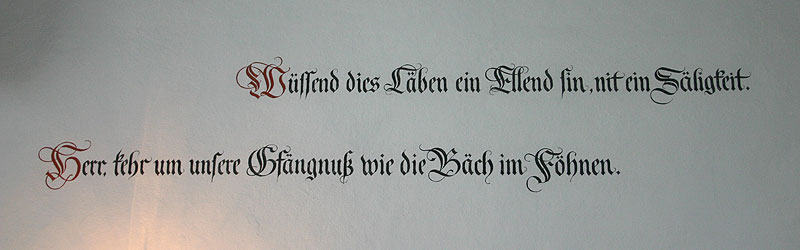 Wüssend dies Läben ein Ellend sin, nit ein Säligkeit.
Herr, kehr um unsere Gfängnuß wie die Bäch im Föhnen.